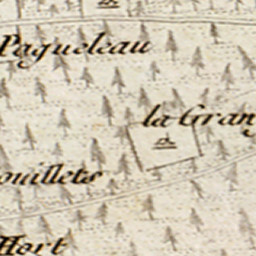 Paqueleau
la Gran
ouillets
Hort